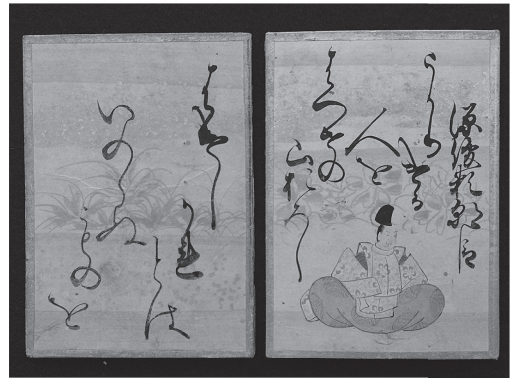 源俊頼朝臣
うかりける
人を
はつせの
山おろし
はけし
かれとは
いのらぬ
ものを